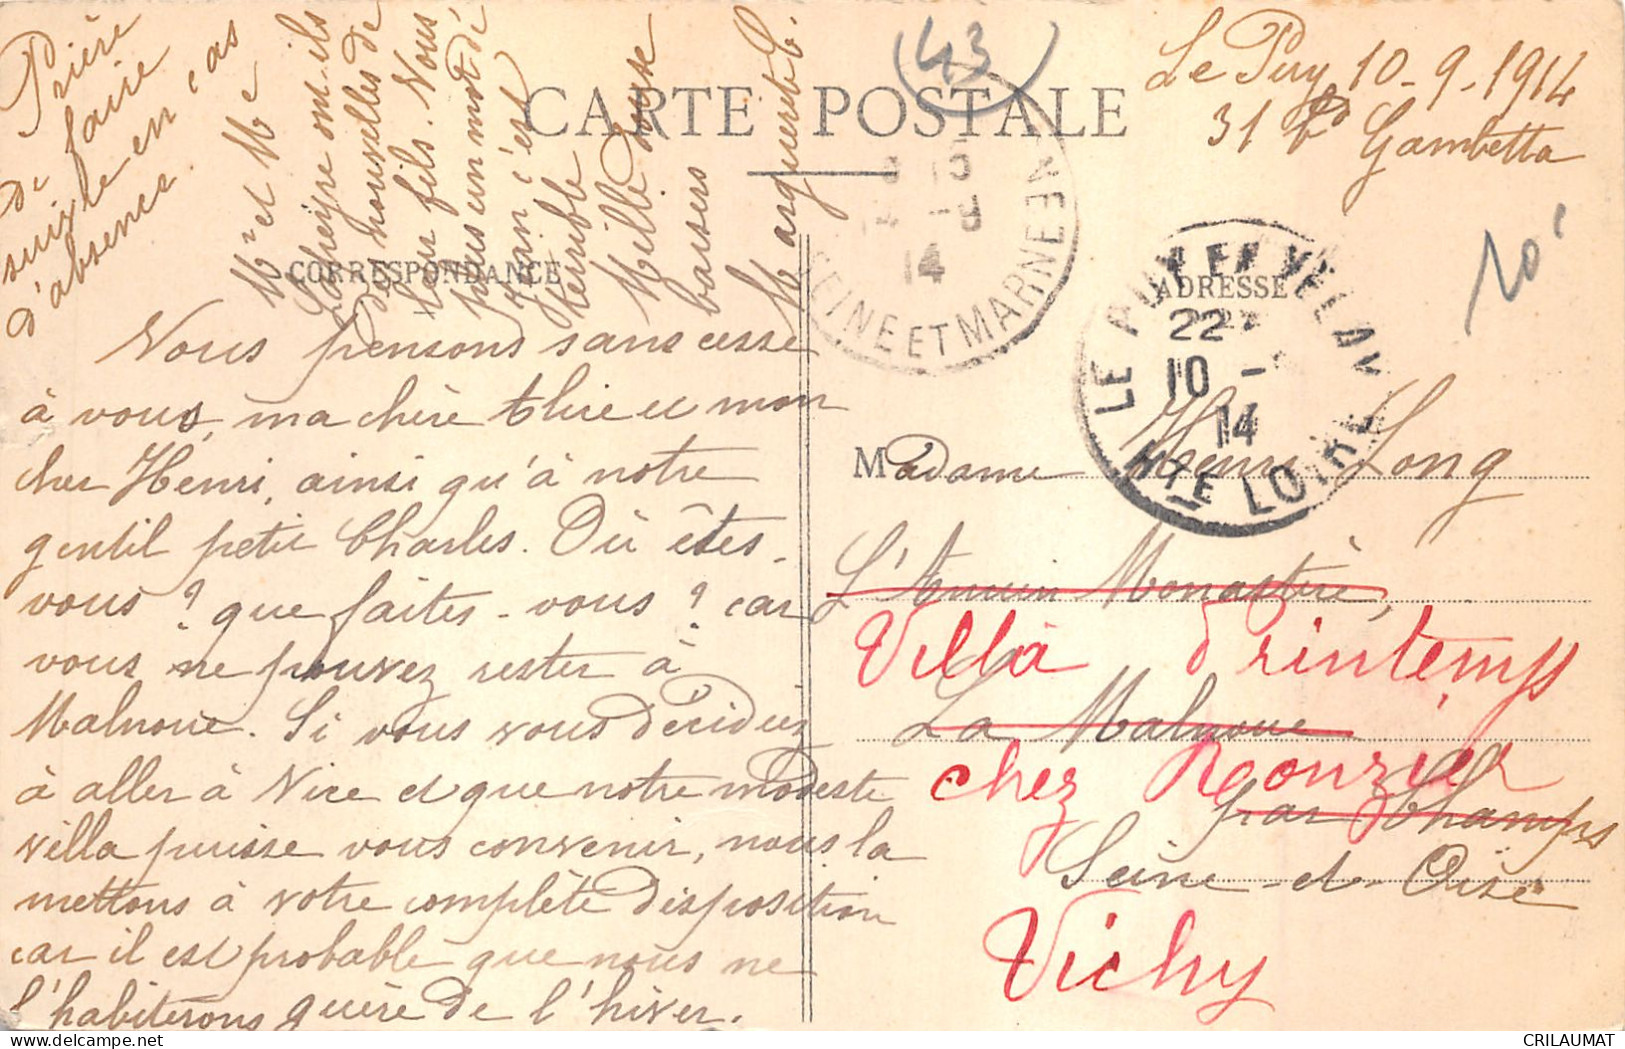 Le Puy 10-9-1914
31 Bd Gambetta
(43)
CARTE POSTALE
CORRESPONDANCE
ADRESSE
Nous pensons sans cesse
à vous, ma chère et mon
cher Henri, ainsi qu'à notre
gentil petit Charles. Où êtes-
vous ? que faites-vous ? car
vous ne pouvez rester à
Malnoue. Si vous vous décidiez
à aller à Nice et que notre modeste
villa puisse vous convenir, nous la
mettons à votre complète disposition
car il est probable que nous ne
l'habiterons guère de l'hiver.
Mr et Me
ont-ils
de nouvelles de
leur fils. Nous
un mot de
c'est
terrible
Mille doux
baisers
Marguerite
Prière
de faire
suivre en cas
d'absence.
Madame Henri Long
L'Ancien Monastère,
Villa Printemps
La Malnoue
chez Rouzier
par Champs
Seine-et-Oise
Vichy
14
SEINE ET MARNE
LE PUY EN VELAY
22
10
14
HTE LOIRE
10c
CRILAUMAT